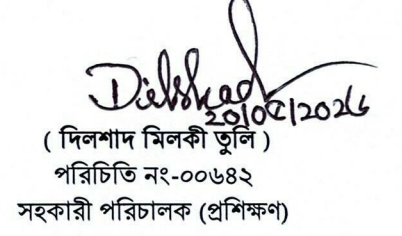 Dilshad
( দিলশাদ মিলকী তুলি )
পরিচিতি নং-০০৬৪২
সহকারী পরিচালক (প্রশিক্ষণ)